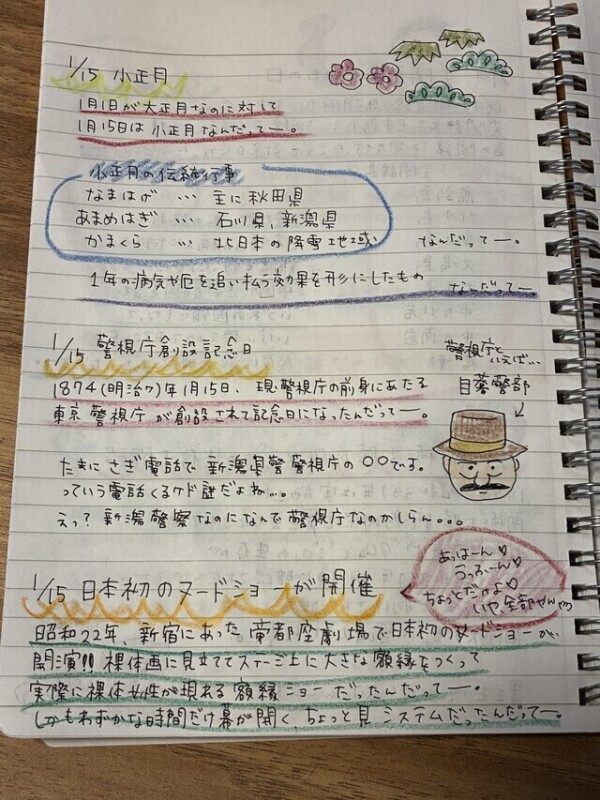 1/15 小正月
1月1日が大正月なのに対して
1月15日は小正月なんだってー。
小正月の伝統行事
なまはげ … 主に秋田県
あまめはぎ … 石川県、新潟県
かまくら … 北日本の降雪地域
なんだってー。
1年の病気や厄を追い払う効果を形にしたもの
なんだってー
1/15 警視庁創設記念日
警視庁と
いえば…
目暮警部
1874(明治7)年1月15日、現警視庁の前身にあたる
東京警視庁が創設されて記念日になったんだってー。
たまにさぎ電話で新潟県警警視庁の〇〇です。
っていう電話くるケド謎だよね…。
えっ? 新潟警察なのになんで警視庁なのかしらん。。。
あっはーん♡
うっふーん♡
ちょっとだけよ♡
いや、全部やんけ
1/15 日本初のヌードショーが開催
昭和22年、新宿にあった帝都座劇場で日本初のヌードショーが
開演!! 裸体画に見立ててステージ上に大きな額縁をつくって
実際に裸体女性が現れる額縁ショーだったんだってー。
しかもわずかな時間だけ幕が開く、ちょっと見システムだったんだってー。